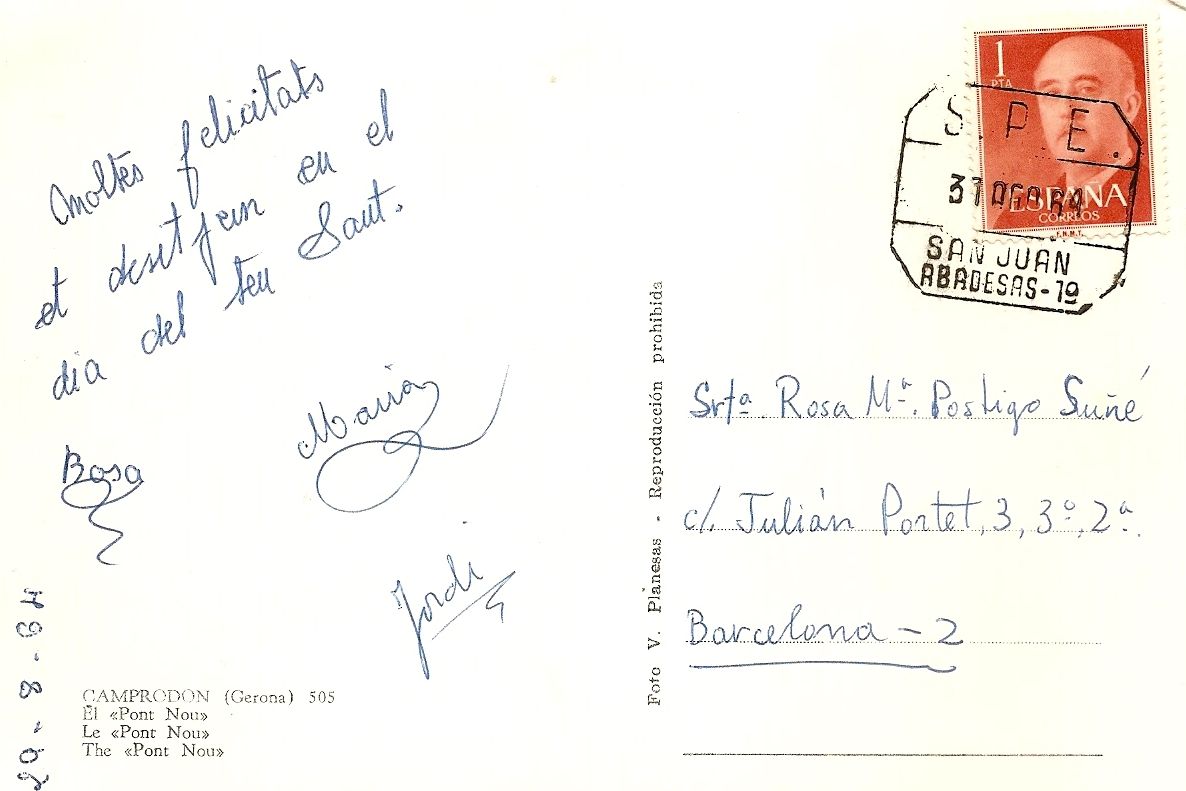 moltes felicitats
et desitjem en el
dia del teu Sant.
Rosa
Maria
Jordi
29-8-64
CAMPRODON (Gerona) 505
El «Pont Nou»
Le «Pont Nou»
The «Pont Nou»
Foto V. Planesas - Reproducción prohibida
1
PTA
ESPAÑA
CORREOS
F.N.M.T.
S.P.E.
31 AGO 64
SAN JUAN
ABADESAS-1º
Srtª. Rosa Mª. Postigo Suñé
c/. Julián Portet, 3, 3º, 2ª.
Barcelona - 2